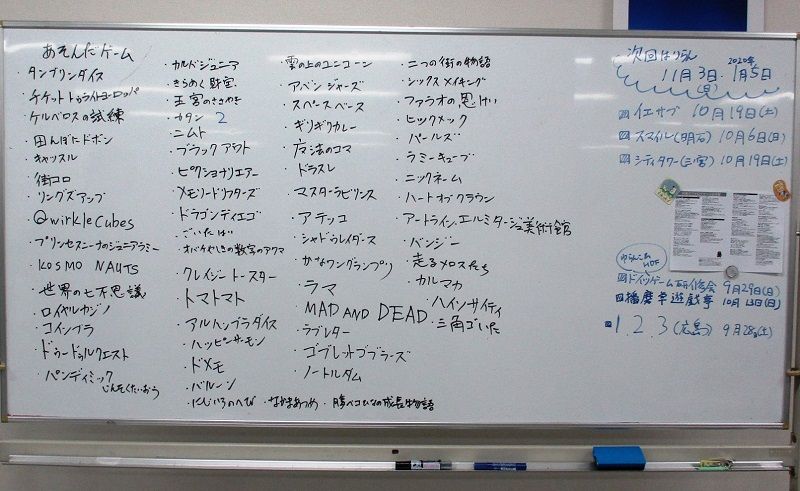 あそんだゲーム
・タンブリンダイス
・チケットトゥライドヨーロッパ
・ケルベロスの試練
・田んぼだドボン
・キャッスル
・街コロ
・リングズアップ
・Qwirkle Cubes
・プリンセスニーナのジュニアラミー
・KOSMO NAUTS
・世界の七不思議
・ロイヤルカジノ
・コインブラ
・ドゥードゥルクエスト
・パンデミック
じんそくたいおう
・カルドジュニア
・きらめく財宝
・王宮のささやき
・カタン 2
・ニムト
・ブラックアウト
・ピクショナリエアー
・メモリードリフターズ
・ドラゴンディエゴ
・ごいたばい
・オバケやしきの数字のアクマ
・クレイジートースター
・トマトマト
・アルハンブラダイス
・ハッピーサーモン
・ドメモ
・バルーン
・にじいろのへび
・なかまあつめ
・勝ペコひなの成長物語
・雲の上のユニコーン
・アベンジャーズ
・スペースベース
・ギリギリカレー
・魔法のコマ
・ドラスレ
・マスターラビリンス
・アテッコ
・シャドウレイダース
・かなワングランプリ
・ラマ
・MAD AND DEAD
・ラブレター
・ゴブレットゴブラーズ
・ノートルダム
・二つの街の物語
・シックスメイキング
・ファラオの恩けい
・ヒックメック
・パールズ
・ラミーキューブ
・ニックネーム
・ハートオブクラウン
・アートライン、エルミタージュ美術館
・バンジー
・走るメロスたち
・カルマカ
・ハインサイティ
・三角ごいた
次回はりらん
11月3日(日) 2020年 1月5日
イエサブ 10月19日(土)
スマイル(明石) 10月6日(日)
シティタワー(三宮) 10月19日(土)
ドイツゲーム研修会 9月29日(日)
播磨卓遊戯亭 10月13日(日)
1.2.3(広島) 9月28日(土)